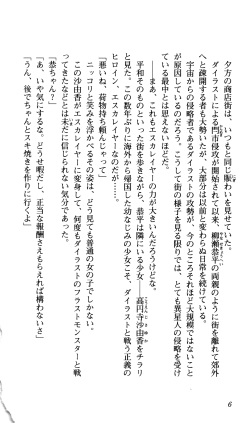 夕方の商店街は、いつもと同じ賑わいを見せていた。
ダイラストによる門市侵攻が開始されて以来、柳瀬恭平の両親のように街を離れて郊外
へと疎開する者も大勢いたが、大部分は以前と変わらぬ日常を続けている。
宇宙からの侵略者であるダイラストの攻勢が、今のところそれほど大規模ではないこと
が原因しているのだろう。こうして街の様子を見る限りでは、とても異星人の侵略を受け
ている最中とは思えないほどだ。
まあ、これもエスカレイヤーの力が大きいんだろうけどな。
平和そのものといった街を歩きながら、恭平は隣にいる少女――高円寺沙由香をチラリ
と見た。この数年ぶりに海外から帰国した幼なじみの少女こそ、ダイラストと戦う正義の
ヒロイン　エスカレイヤーなのだが……。
「悪いね、荷物持ち頼んじゃって」
ニッコリと笑みを浮かべるその姿は、どう見ても普通の女の子でしかない。
この沙由香がエスカレイヤーに変身して、何度もダイラストのフラストモンスターと戦
ってきたなどとは未だに信じられない気分であった。
「恭ちゃん？」
「あ、いや気にするな。どうせ暇だし、正当な報酬さえもらえれば構わないさ」
「うん、後でちゃんとスキ焼きを作りに行くよ」
6